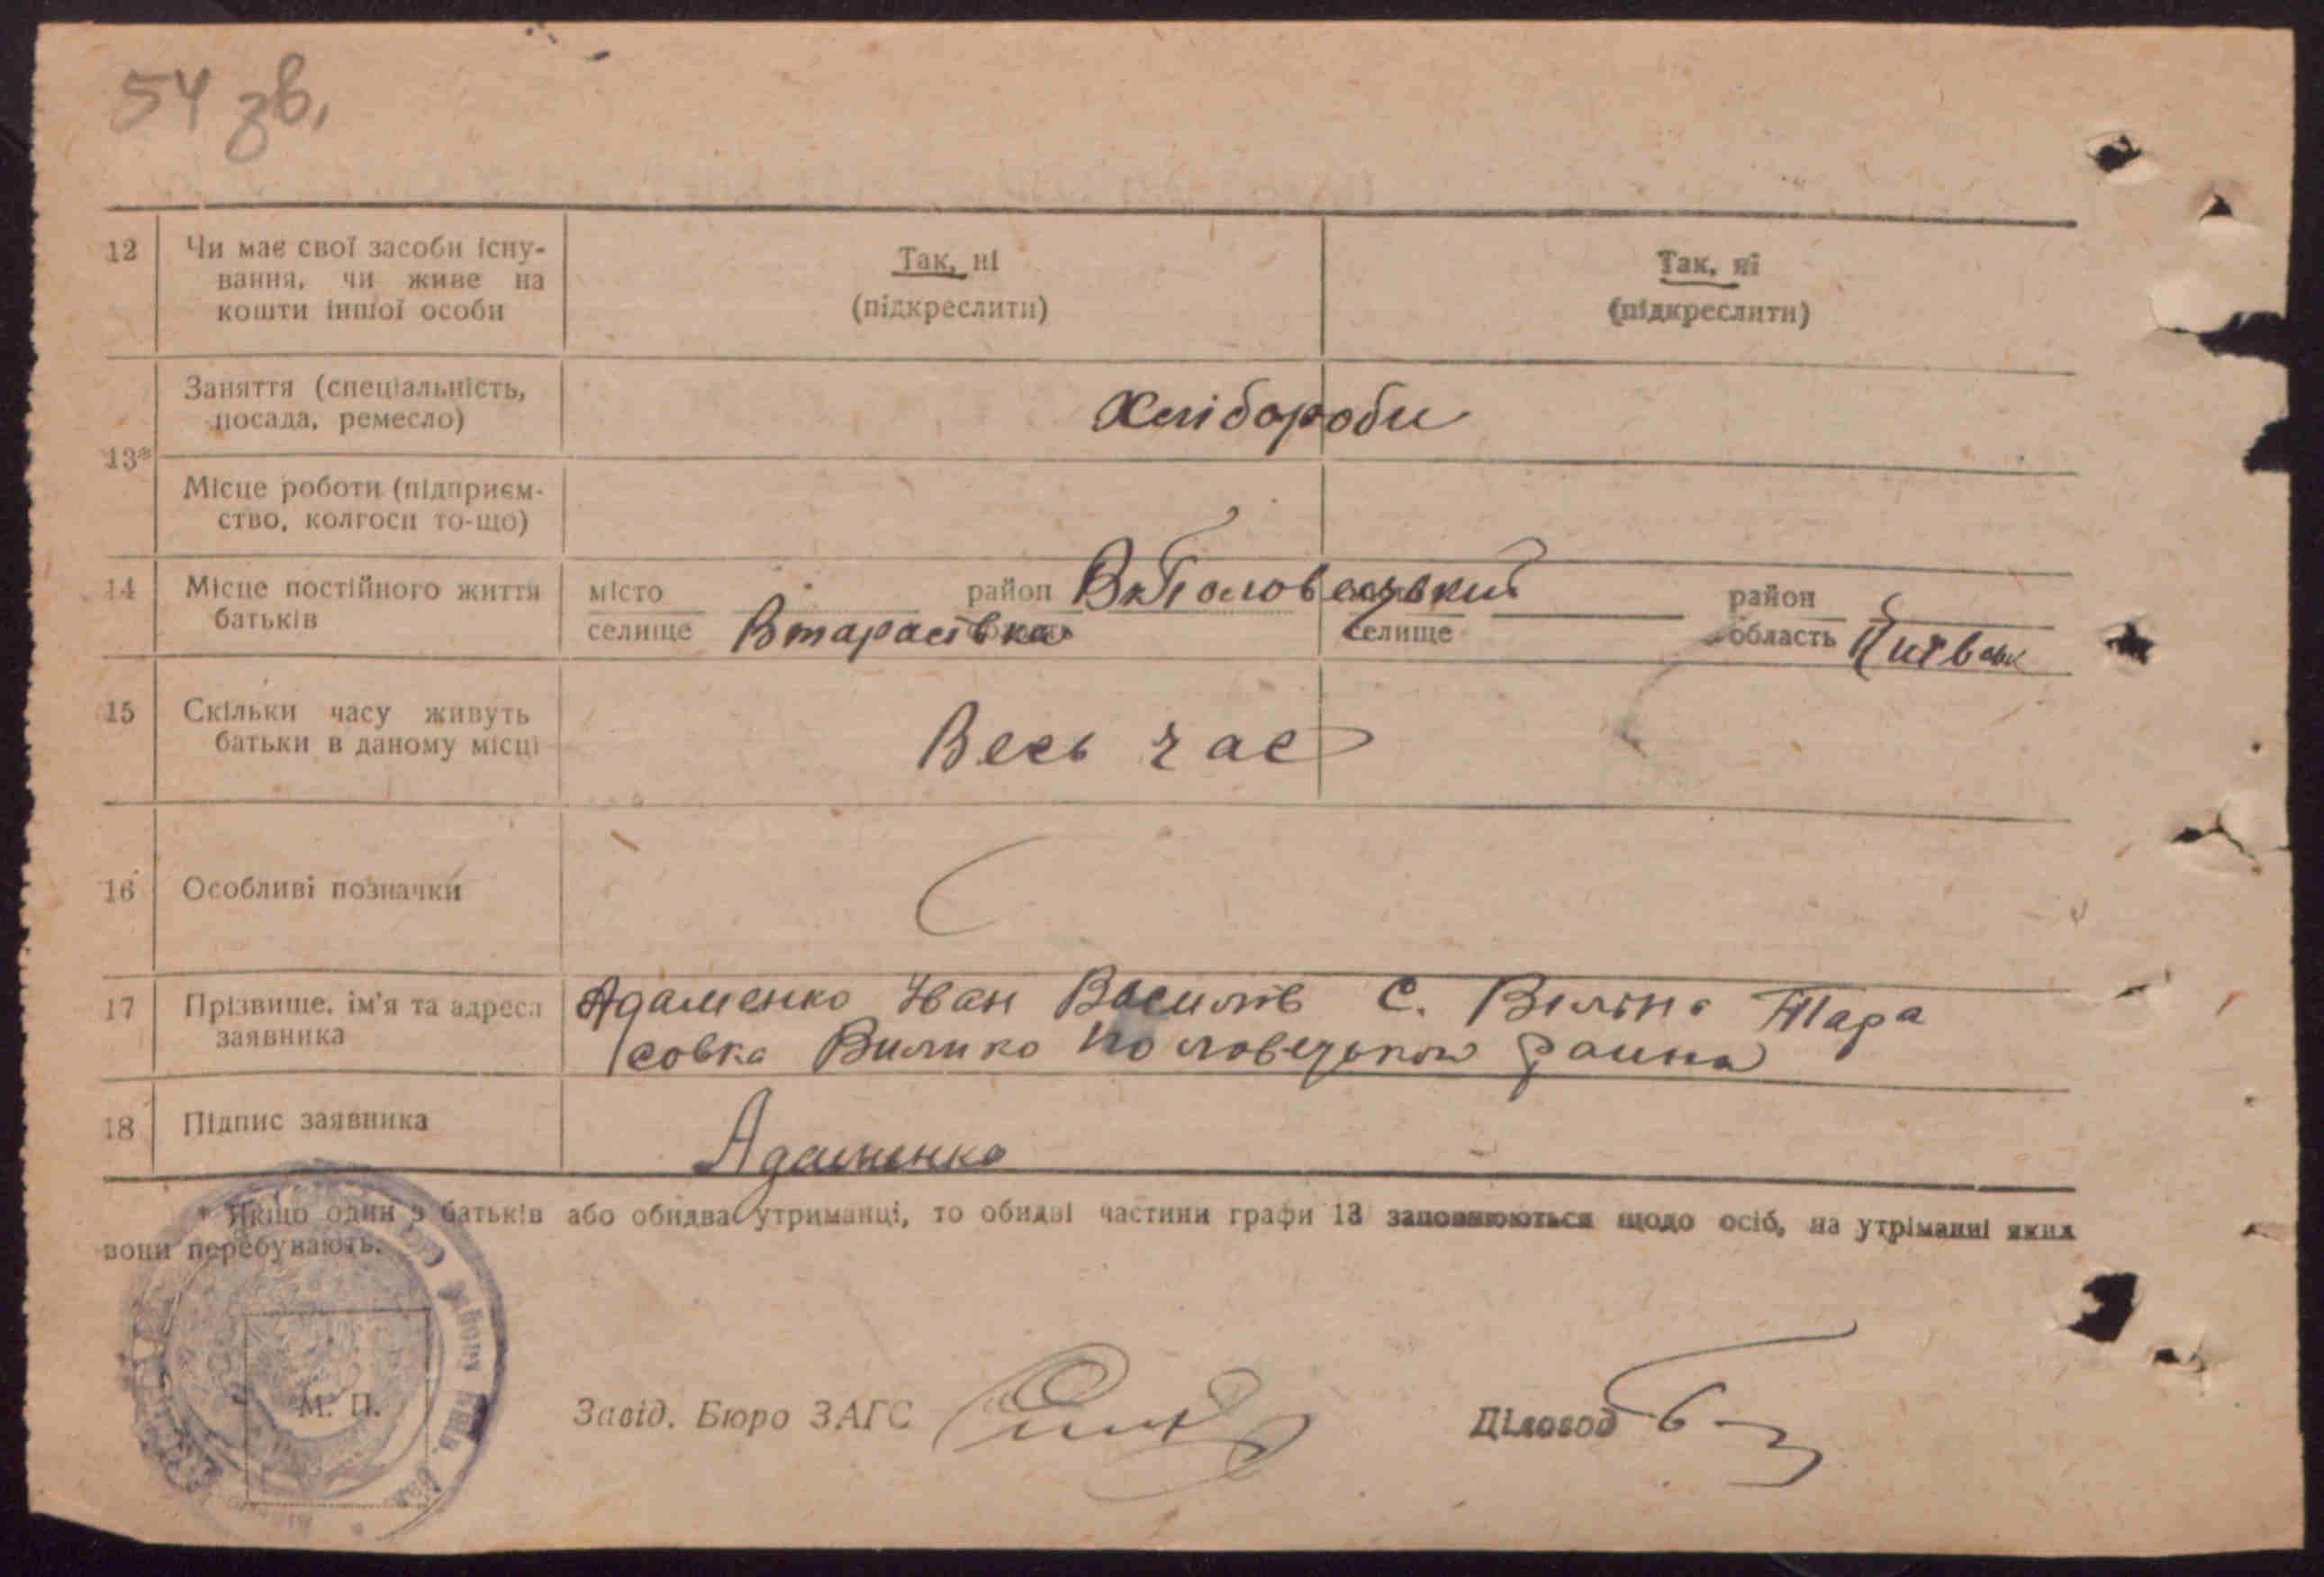 54 зв.
12 Чи має свої засоби існу-
вання, чи живе на
кошти іншої особи
Так, ні
(підкреслити)
Так, ні
(підкреслити)
13*
Заняття (спеціальність,
посада, ремесло)
Хлібороби
Місце роботи (підприєм-
ство, колгосп то-що)
14 Місце постійного життя
батьків
місто
селище Втарасівка
район ВкПоловецький
селище
район
область Київськ
15 Скільки часу живуть
батьки в даному місці
Весь час
16 Особливі позначки
17 Прізвище, ім'я та адреса
заявника
Адаменко Іван Василів С. Тара
совка Вилико Половецького
18 Підпис заявника
Адаменко
* Якщо один з батьків або обидва утриманці, то обидві частини графи 13 заповнюються щодо осіб, на утріманні яких
вони перебувають.
М. П.
Завід. Бюро ЗАГС
Діловод